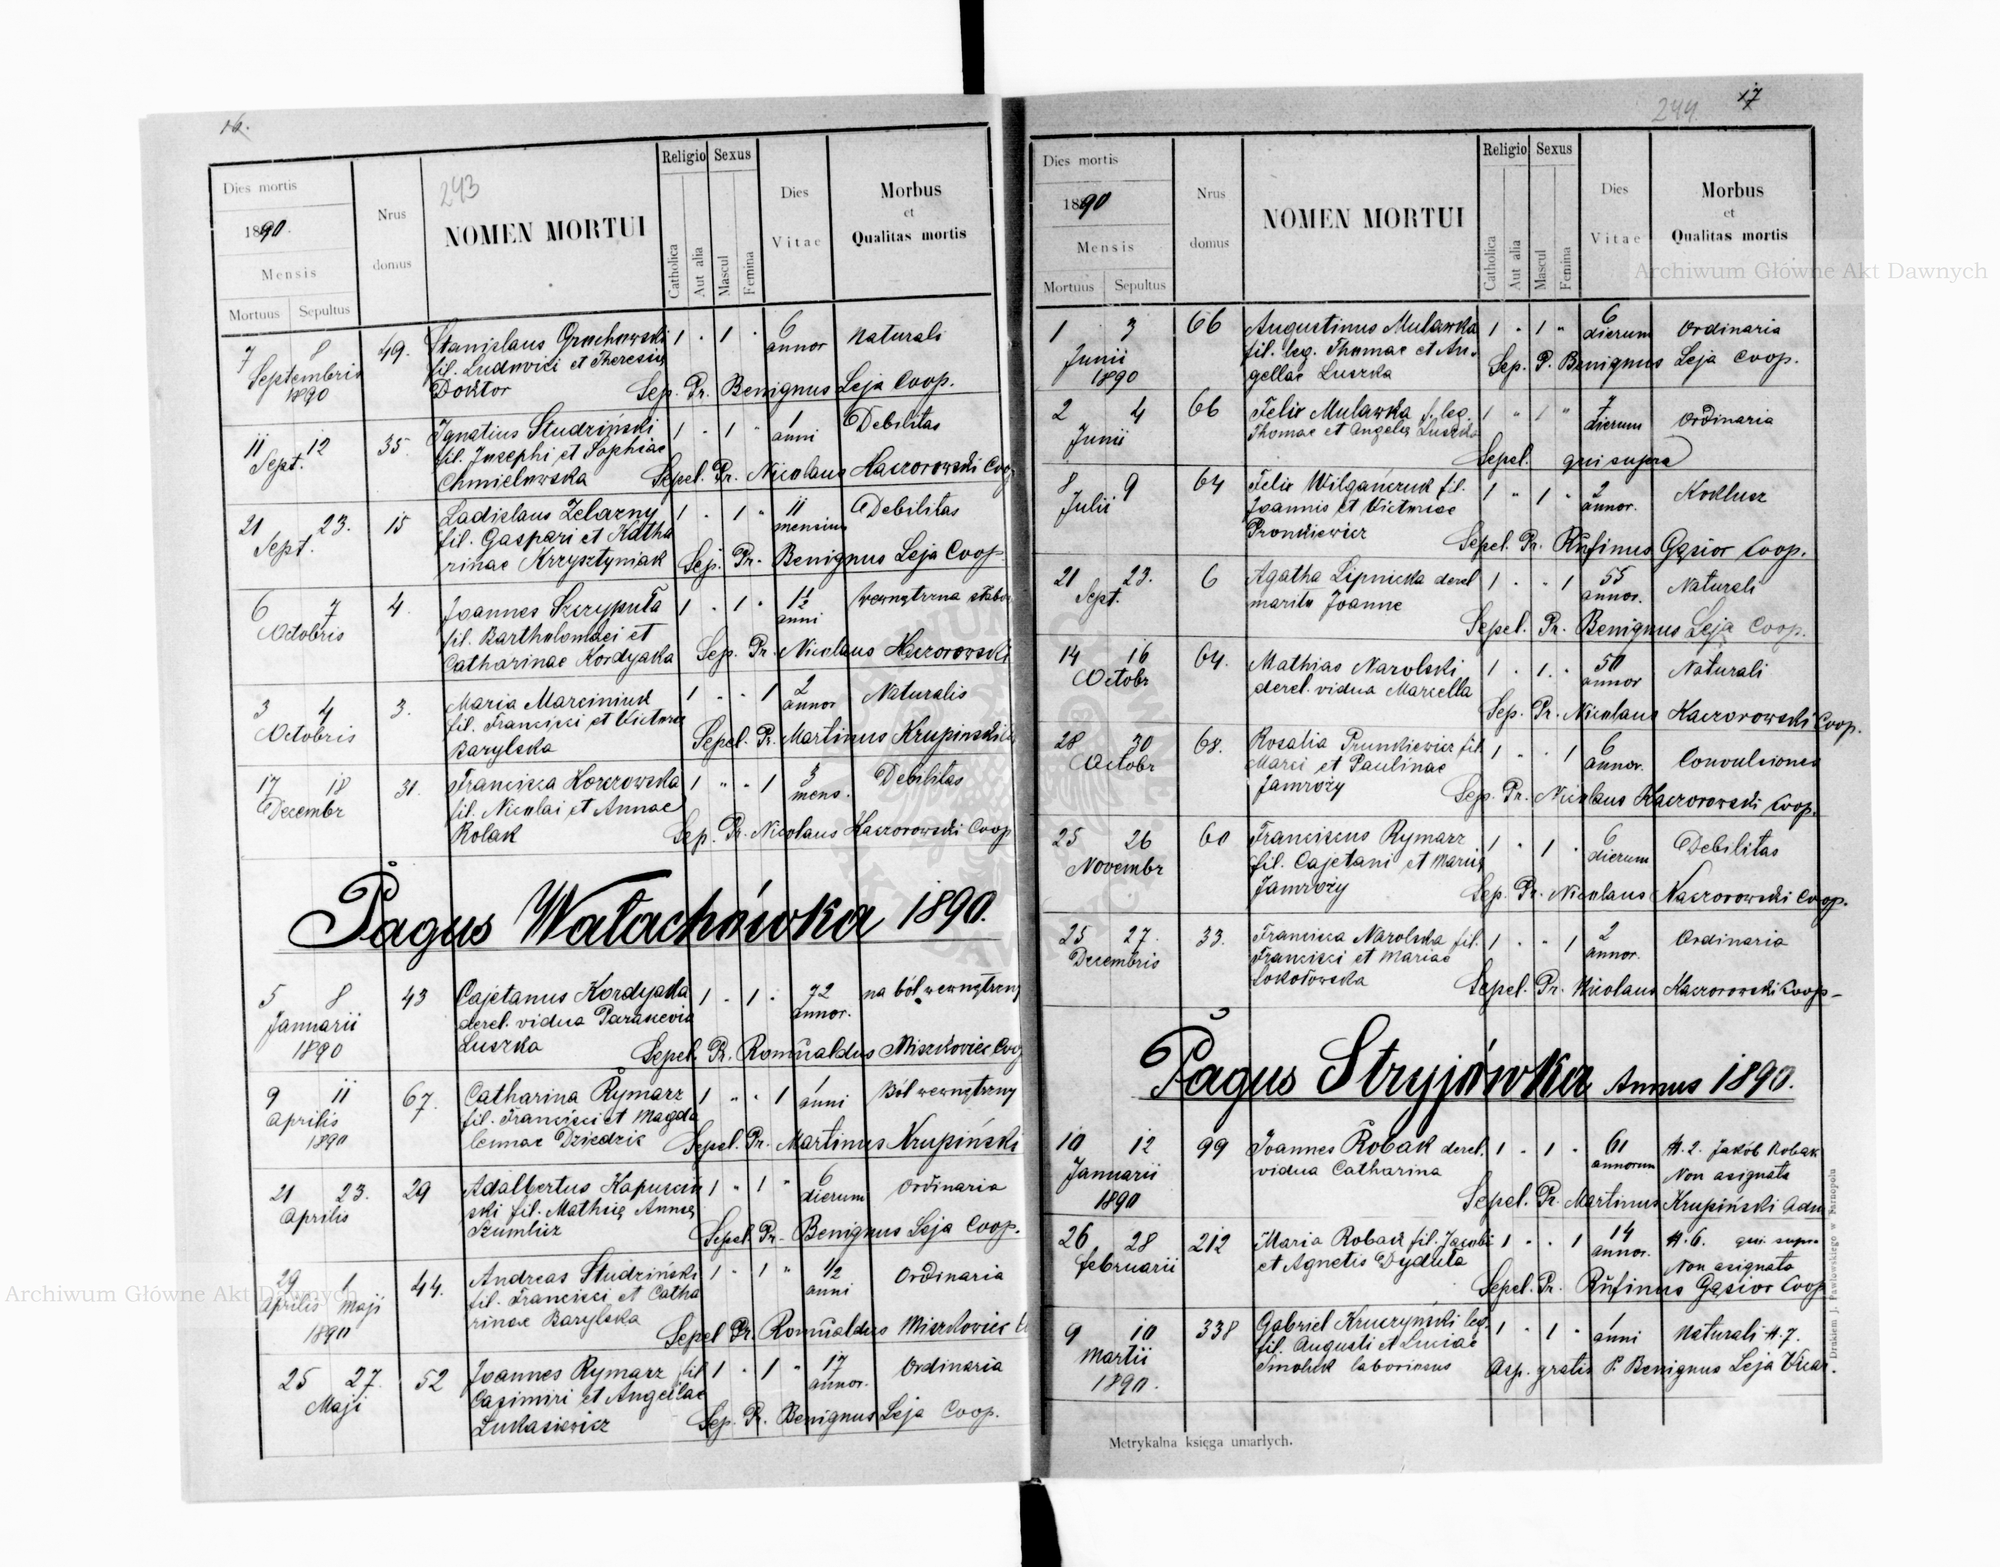 16.
243
Dies mortis
1890.
Mensis
Mortuus Sepultus
Nrus domus
NOMEN MORTUI
Religio
Catholica
Aut alia
Sexus
Mascul
Femina
Dies Vitae
Morbus
et
Qualitas mortis
7 8 49. Stanislaus Grochowski 1 " 1 " 6 Naturali
Septembris fil. Ludovici et Theresiae annor
1890 Doktor Sep. Pr. Benignus Leja Coop.
11 12 35. Ignatius Studziński 1 " 1 " 1 Debilitas
Sept. fil. Josephi et Sophiae anni
Chmielowska Sepel. Pr. Nicolaus Kaczorowski Coop
21 23. 15 Ladislaus Zelazny 1 " 1 " 11 Debilitas
Sept. fil. Gaspari et Katha mensium
rinae Krzysztyniak Sep. Pr. Benignus Leja Coop.
6 7 4. Joannes Szczyputa 1 " 1 " 1 1/2 wewnętrzna słabo
Octobris fil. Bartholomaei et anni
Catharinae Kordyaka Sep. Pr. Nicolaus Kaczorowski
3 4 3. Maria Marciniuk 1 " " 1 2 Naturalis
Octobris fil. Francisci et Victoria annor
Barylska Sepel. Pr. Martinus Krupinski
17 18 31. Francisca Korczowska 1 " " 1 3 Debilitas
Decembr fil. Nicolai et Annae mens.
Rolak Sep. Pr. Nicolaus Kaczorowski Coop
Pagus Wałachówka 1890.
5 8 43 Cajetanus Kordyaka 1 " 1 " 72 na ból wewnętrzny
Januarii derel. vidua Parascevia annor.
1890 Luszka Sepel. Pr. Romualdus Miszkoviec Coop
9 11 67. Catharina Rymarz 1 " " 1 1 Ból wewnętrzny
Aprilis fil. Francisci et Magda anni
1890 lennae Dziedzic Sepel. Pr. Martinus Krupiński
21 23. 29 Adalbertus Kapuscin 1 " 1 " 6 Ordinaria
Aprilis ski fil. Mathię Annę dierum
Szumlicz Sepel. Pr. Benignus Leja Coop.
29 1 44. Andreas Studziński 1 " 1 " 1/2 Ordinaria
Aprilis Maji fil. Francisci et Catha anni
1890 rinae Barylska Sepel Pr. Romualdus Miszkoviec
25 27. 52 Joannes Rymarz fil 1 " 1 " 17 Ordinaria
Maji Casimiri et Angellae annor.
Lukasiewicz Sep. Pr. Benignus Leja Coop.
244. 17
Dies mortis
1890
Mensis
Mortuus Sepultus
Nrus domus
NOMEN MORTUI
Religio
Catholica
Aut alia
Sexus
Mascul
Femina
Dies Vitae
Morbus
et
Qualitas mortis
1 3 66 Augustinus Mulawka 1 " 1 " 6 Ordinaria
Junii fil. leg. Thomae et An- dierum
1890 gellae Luszka Sep. P. Benignus Leja Coop.
2 4 66 Felix Mulawka f. leg. 1 " 1 " 7 Ordinaria
Junii Thomae et Angelę Luszka dierum
Sepel. qui supra
8 9 64 Felix Wilgańczuk fil. 1 " 1 " 2 Koklusz
Julii Joannis et Victoriae annor.
Pronkiewicz Sepel. Pr. Rufinus Gąsior Coop.
21 23. 6 Agatha Lipnicka derel 1 " " 1 55 Naturali
Sept. marito Joanne annor.
Sepel. Pr. Benignus Leja Coop.
14 16 64. Mathias Narolski 1 " 1. " 50 Naturali
Octobr derel. vidua Marcella annor
Sep. Pr. Nicolaus Kaczorowski Coop.
28 30 68. Rosalia Prunkiewicz fil 1 " " 1 6 Convulsiones
Octobr Marci et Paulinae annor.
Jamroży Sep. Pr. Nicolaus Kaczorowski Coop.
25 26 60 Franciscus Rymarz 1 " 1 " 6 Debilitas
Novembr fil. Cajetani et Marię dierum
Jamroży Sep. Pr. Nicolaus Kaczorowski Coop.
25 27. 33. Francisca Narolska fil. 1 " " 1 2 Ordinaria
Decembris Francisci et Mariae annor.
Sokołowska Sepel. Pr. Nicolaus Kaczorowski Coop.
Pagus Stryjówka Annus 1890.
10 12 99 Joannes Robak derel. 1 " 1 " 61 H. 2. Jakób Robak
Januarii vidua Catharina annorum Non asignata
1890 Sepel. Pr. Martinus Krupiński Adm
26 28 212 Maria Robak fil. Jacobi 1 " " 1 14 H. 6. qui supra
Februarii et Agnetis Dydula annor. Non asignata
Sepel. Pr. Rufinus Gąsior Coop
9 10 338 Gabriel Kruczyński leg. 1 " 1 " 1 Naturali H. 7.
Martii fil. Augusti et Luciae anni
1890. Smoluk laboriosus Asp. gratis P. Benignus Leja Vicar.
Metrykalna księga umarłych.
Drukiem J. Pawłowskiego w Tarnopolu
Archiwum Główne Akt Dawnych
Archiwum Główne Akt Dawnych